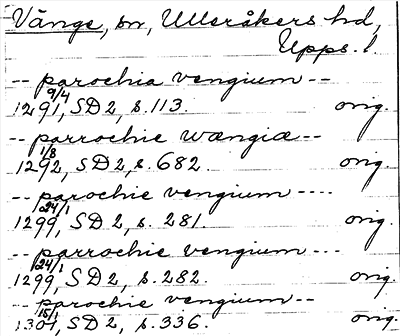 Vänge, sn, Ulleråkers hd,
Upps. l.
-- parochia vengium --
9/4
1291, SD 2, s. 113. orig.
-- parrochie wængiæ --
1/8
1292, SD 2, s. 682. orig.
-- parochie vengium ----
24/1
1299, SD 2, s. 281. orig.
-- parrochie vengium ---
24/1
1299, SD 2, s. 282. orig.
-- parochie vengium ---
15/1
1301, SD 2, s. 336. orig.